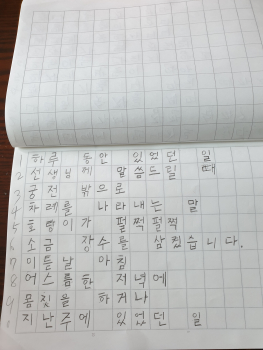 1 하루 동안 있었던 일
2 선생님께 말씀드릴 때
3 궁전 밖으로
4 차례를 나타내는 말
5 호랑이가 펄쩍펄쩍
6 소금 장수를 삼켰습니다.
7 이튿날 아침
8 어스름한 저녁에
9 몸짓을 하거나
10 지난주에 있었던 일